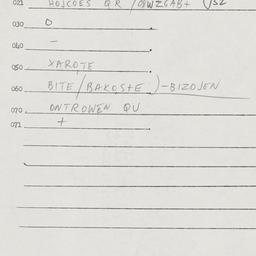 021 HOJCOES QR
030 O
040 —
050 XAROTE
060 BITE/BAKOSTE)-BIZOJEN
070 ONTROWEN QU
071 +